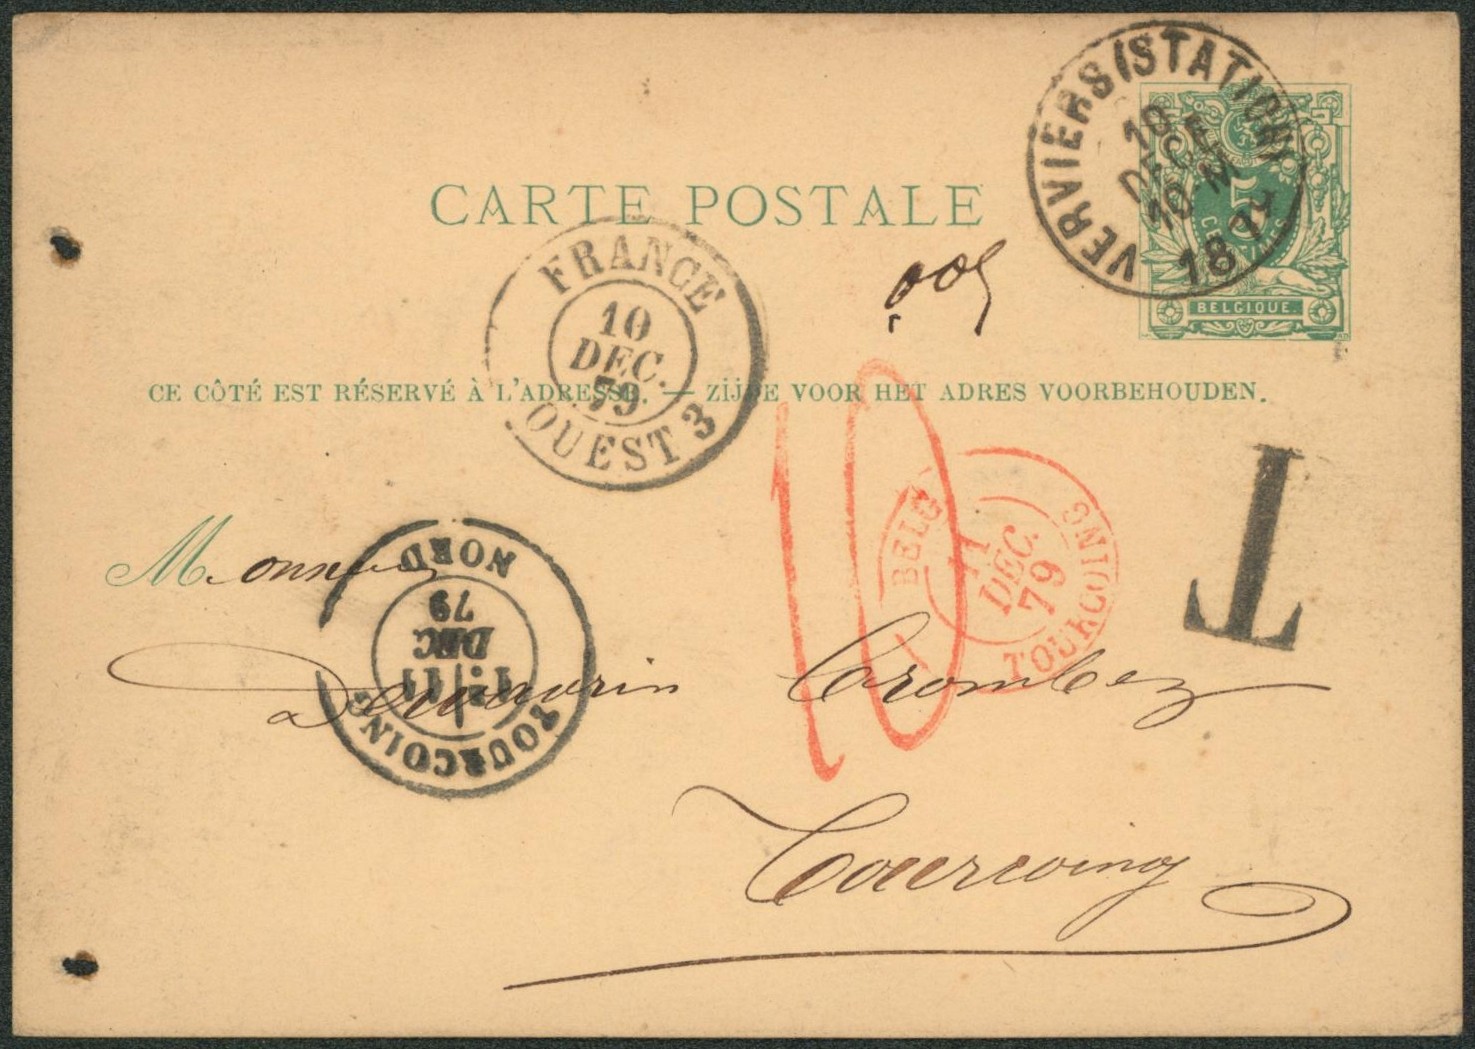 VERVIERS (STATION)
10
DECE
10-M
1879
5
CENTIMES
BELGIQUE
CARTE POSTALE
FRANCE
10
DEC.
79
OUEST 3
CE CÔTÉ EST RÉSERVÉ À L'ADRESSE. — ZIJDE VOOR HET ADRES VOORBEHOUDEN.
10
BELG
11
DEC.
79
TOURCOING
T
Monsieur
TOURCOING
11
DEC
79
NORD
Crombez
Tourcoing